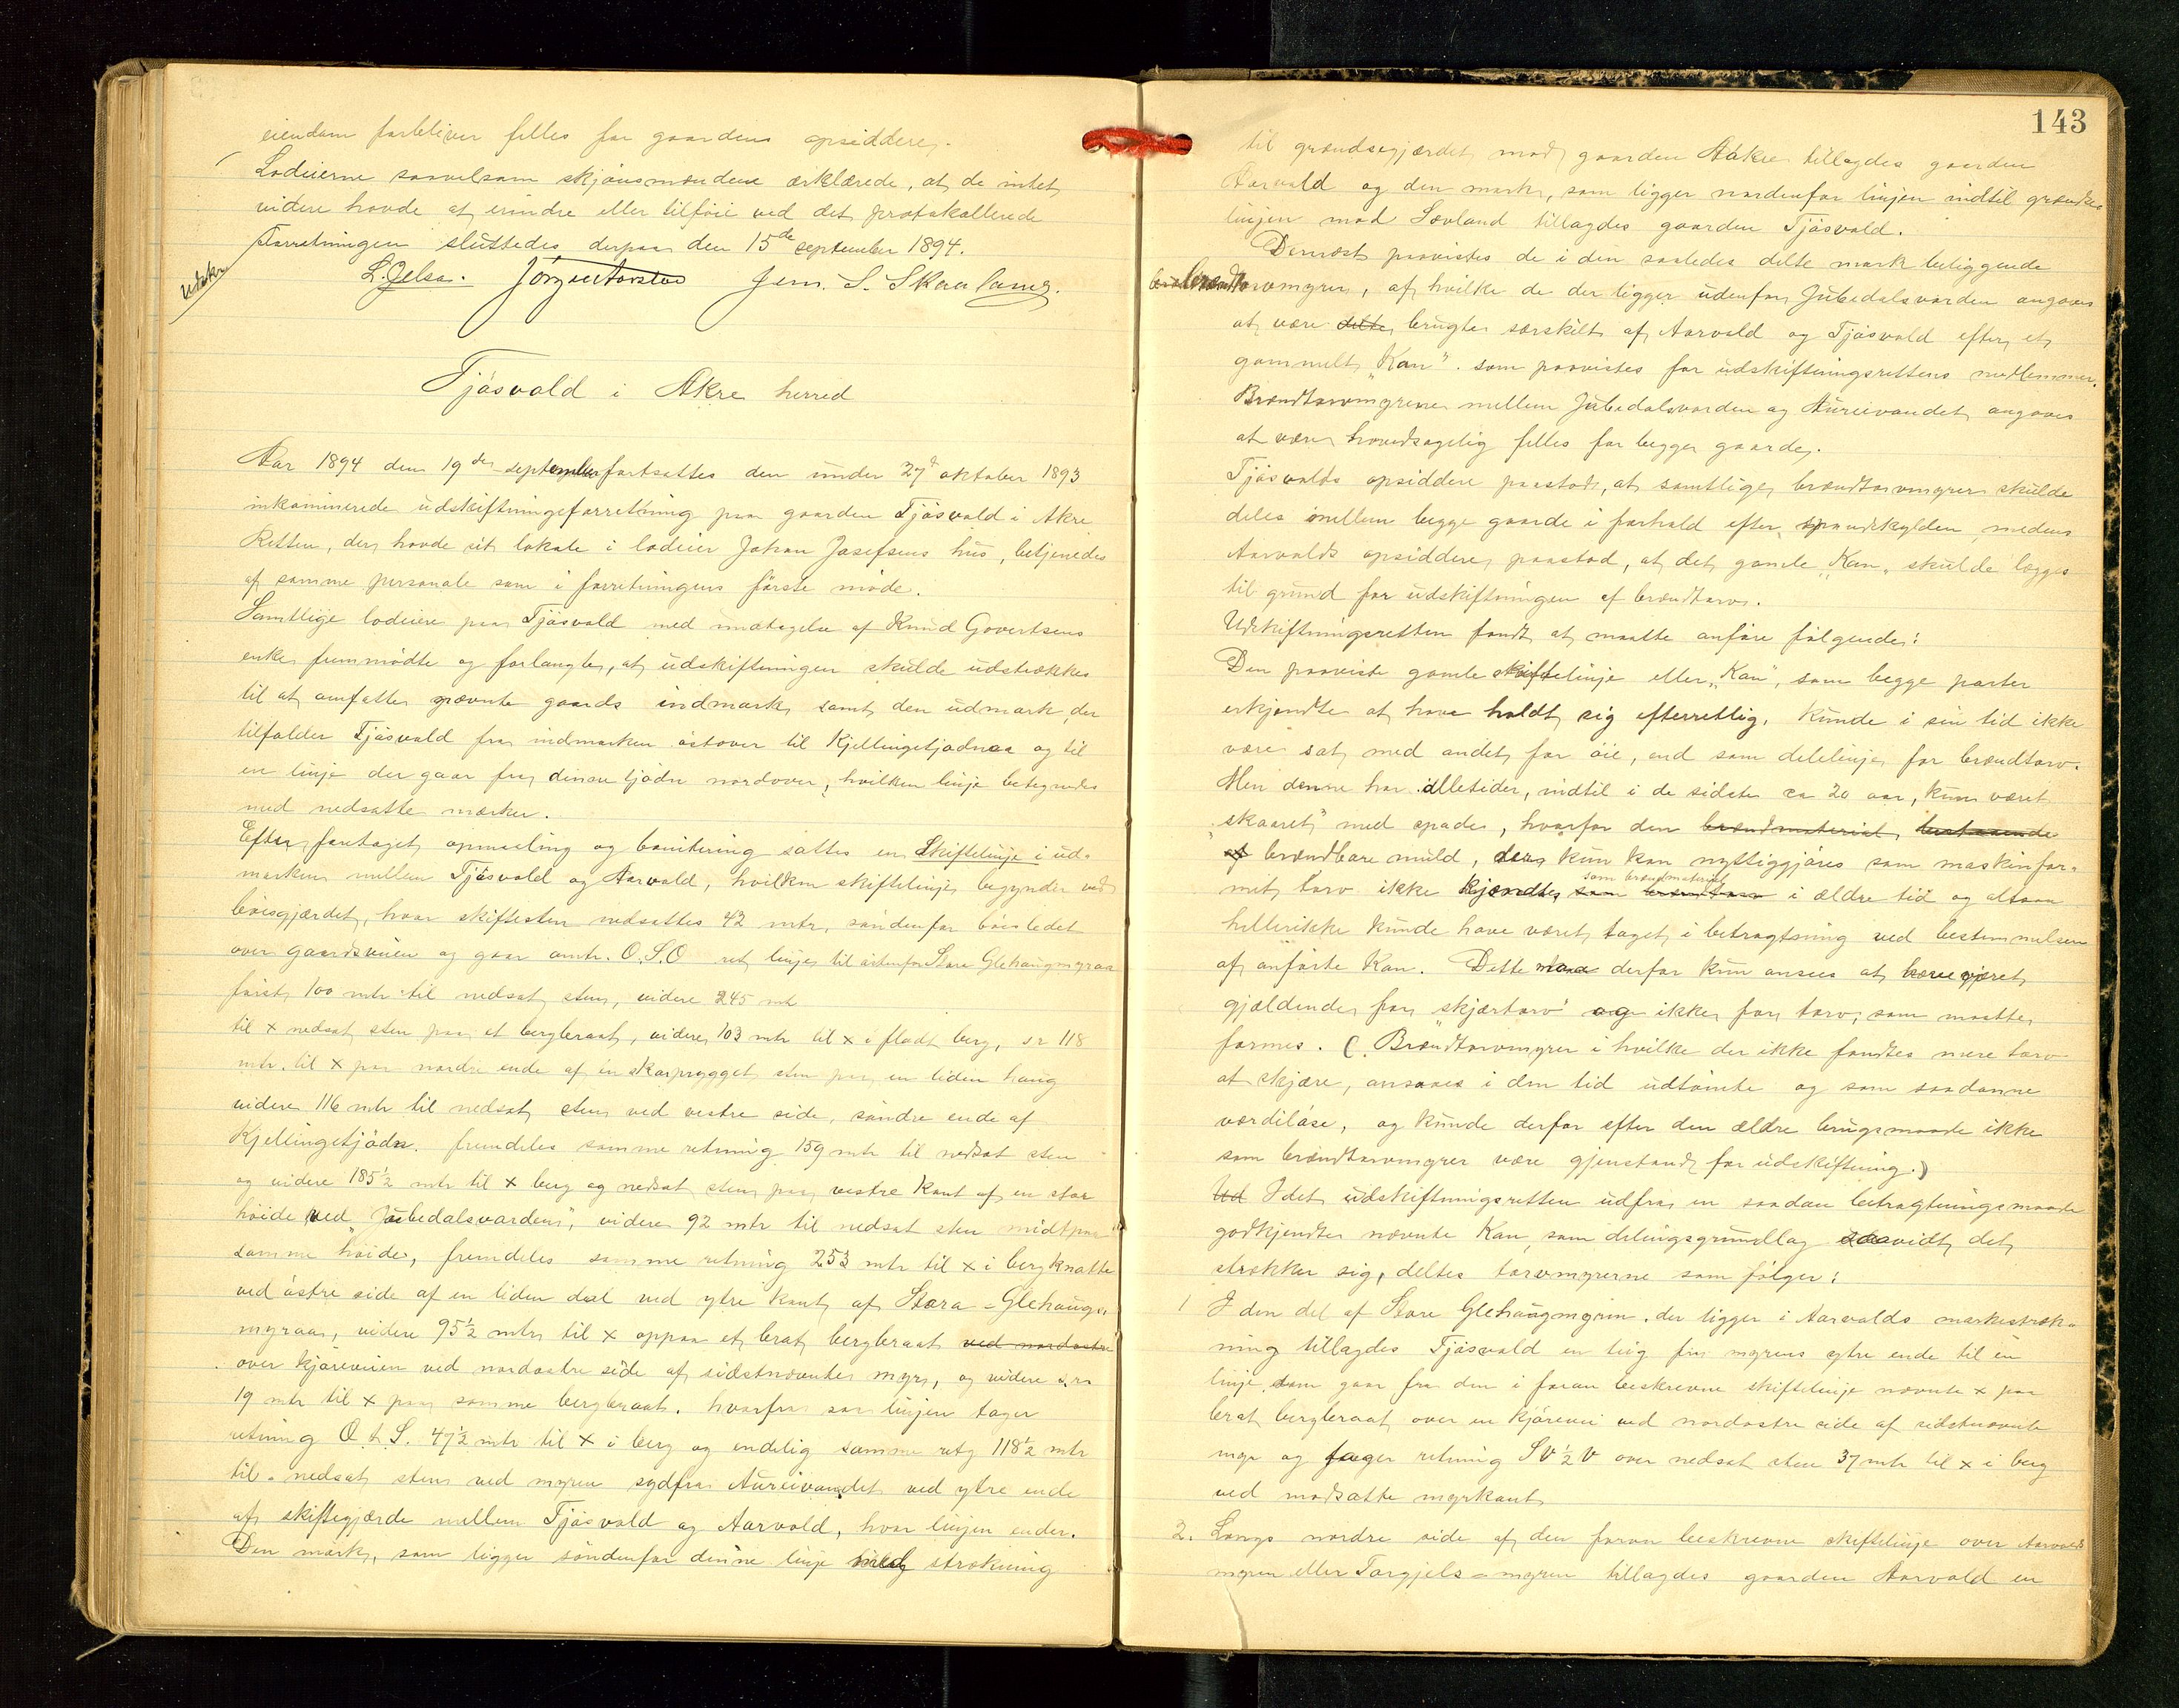 eiendom forbliver fælles for gaardens opsiddere.
Lodeierne saavelsom skjønsmændene erklærede, at de intet
videre havde at erindre eller tilføie ved det protokollerede
Forretningen sluttedes derpaa den 15de september 1894.
Udskr
L. Jelsa. Jörgen Aarstad Jem. S. Skaaland.
Tjøsvold i Akre herred
Aar 1894 den 19de september fortsattes den under 27d oktober 1893
inkaminerede udskiftningsforretning paa gaarden Tjøsvold i Akre
Retten, der havde sit lokale i lodeier Johan Josefsens hus, betjenedes
af samme personale som i forretningens første møde.
Samtlige lodeiere paa Tjøsvold med undtagelse af Knud Govertsens
enke fremmødte og forlangte, at udskiftningen skulde udstrækkes
til at omfatte nævnte gaards indmark samt den udmark, der
tilfalder Tjøsvold fra indmarken østover til Kjellingetjødnaa og til
en linje der gaar fra denne tjødn nordover, hvilken linje betegnedes
med nedsatte mærker.
Efter foretaget opmaaling og bonitering sattes en Skiftelinje i ud-
marken mellem Tjøsvold og Aarvold, hvilken skiftelinje begynder ved
bøisgjærdet, hvor skiftesten nedsattes 42 mtr, søndenfor bøisledet
over gaardsveien og gaar omtr. O.S.O ret linje til østenfor Store Glehaugmyraa
først 100 mtr til nedsat sten, videre 245 mtr
til x nedsat sten paa et bergbraat, videre 103 mtr til x i fladt berg, sr 118
mtr. til x paa nordre ende af en skarprygget sten paa en liden haug
videre 116 mtr til nedsat sten ved vestre side, søndre ende af
Kjellingetjødn. fremdeles samme retning 159 mtr til nedsat sten
og videre 185½ mtr til x berg og nedsat sten paa vestre kant af en stor
høide ved "Jubedalsvarden", videre 92 mtr til nedsat sten midt paa
samme høide, fremdeles samme retning 253 mtr til x i bergknatte
ved østre side af en liden dal ved ytre kant af Stora-Glehaugs-
myraa, videre 95½ mtr til x oppaa et brat bergbraat ved nordostre
over kjøreveien ved nordostre side af sidstnævnte myr, og videre s.r.
19 mtr til x paa samme bergbraat. hvorfra saa linjen tager
retning O t. S. 47½ mtr til x i berg og endelig samme retg 118½ mtr
til nedsat sten ved myren sydfra Aureivandet ved ytre ende
af skiftegjærde mellem Tjøsvold og Aarvold, hvor linjen ender.
Den mark, som ligger søndenfor denne linje med strækning
143
til grændsegjærdet mod gaarden Aakre tillagdes gaarden
Aarvold og den mark, som ligger nordenfor linjen indtil grændse
linjen mod Sævland tillagdes gaarden Tjøsvold.
Dernæst paavistes de i den saaledes delte mark beliggende
brændtorvmyrer, af hvilke de der ligger udenfor Jubedalsvarden angaves
at være delte brugte særskilt af Aarvold og Tjøsvold efter et
gammelt "Kan". som paavistes for udskiftningsrettens medlemmer.
Brændtorvmyrene mellem Jubedalsvarden og Aureivandet angaves
at være hovedsagelig fælles for begge gaarde.
Tjøsvolds opsiddere paastod, at samtlige brændtorvmyrer skulde
deles imellem begge gaarde i forhold efter grundskylden, medens
Aarvolds opsiddere paastod, at det gamle "Kan" skulde lægges
til grund for udskiftningen af brændtorv.
Udskiftningsretten fandt at maatte anføre følgende:
Den paaviste gamle skiftelinje eller "Kan", som begge parter
erkjendte at have holdt sig efterretlig, kunde i sin tid ikke
være sat med andet for øie, end som delelinje for brændtorv.
Men denne har alletider, indtil i de sidste ca 20 aar, kun været
"skaaret" med spade, hvorfor den brændmateriel bestaaende
af brændbare muld, der kun kan nyttiggjøres som maskinfor-
met torv ikke kjendtes som brændtorv som brændmateriel i ældre tid og altsaa
hellerikke kunde have været taget i betragtning ved bestemmelsen
af anførte Kan. Dette maa derfor kun ansees at have været
gjældende for "skjærtorv" og ikke for torv, som maatte
formes. (Brændtorvmyrer i hvilke der ikke fandtes mere torv
at skjære, ansaaes i den tid udtømte og som saadanne
værdiløse, og kunde derfor efter den ældre brugsmaade ikke
som brændtorvmyrer være gjenstand for udskiftning.)
Ud Idet udskiftningsretten udfra en saadan betragtningsmaade
godkjendte nævnte Kan, som delingsgrundlag saavidt det
strækker sig, deltes torvmyrerne som følger:
1 I den del af Store Glehaugmyren. der ligger i Aarvolds markestræk-
ning tillagdes Tjøsvold en teig fra myrens ytre ende til en
linje, som gaar fra den i foran beskrevne skiftelinje nævnte x paa
brat bergbraat over en kjørevei ved nordostre side af sidstnævnte
myr og tager retning SV½V over nedsat sten 37 mtr til x i berg
ved modsatte myrkant
2. Langs nordre side af den foran beskrevne skiftelinje over Aarvolds
myren eller Torgjels-myren tillagdes gaarden Aarvold en